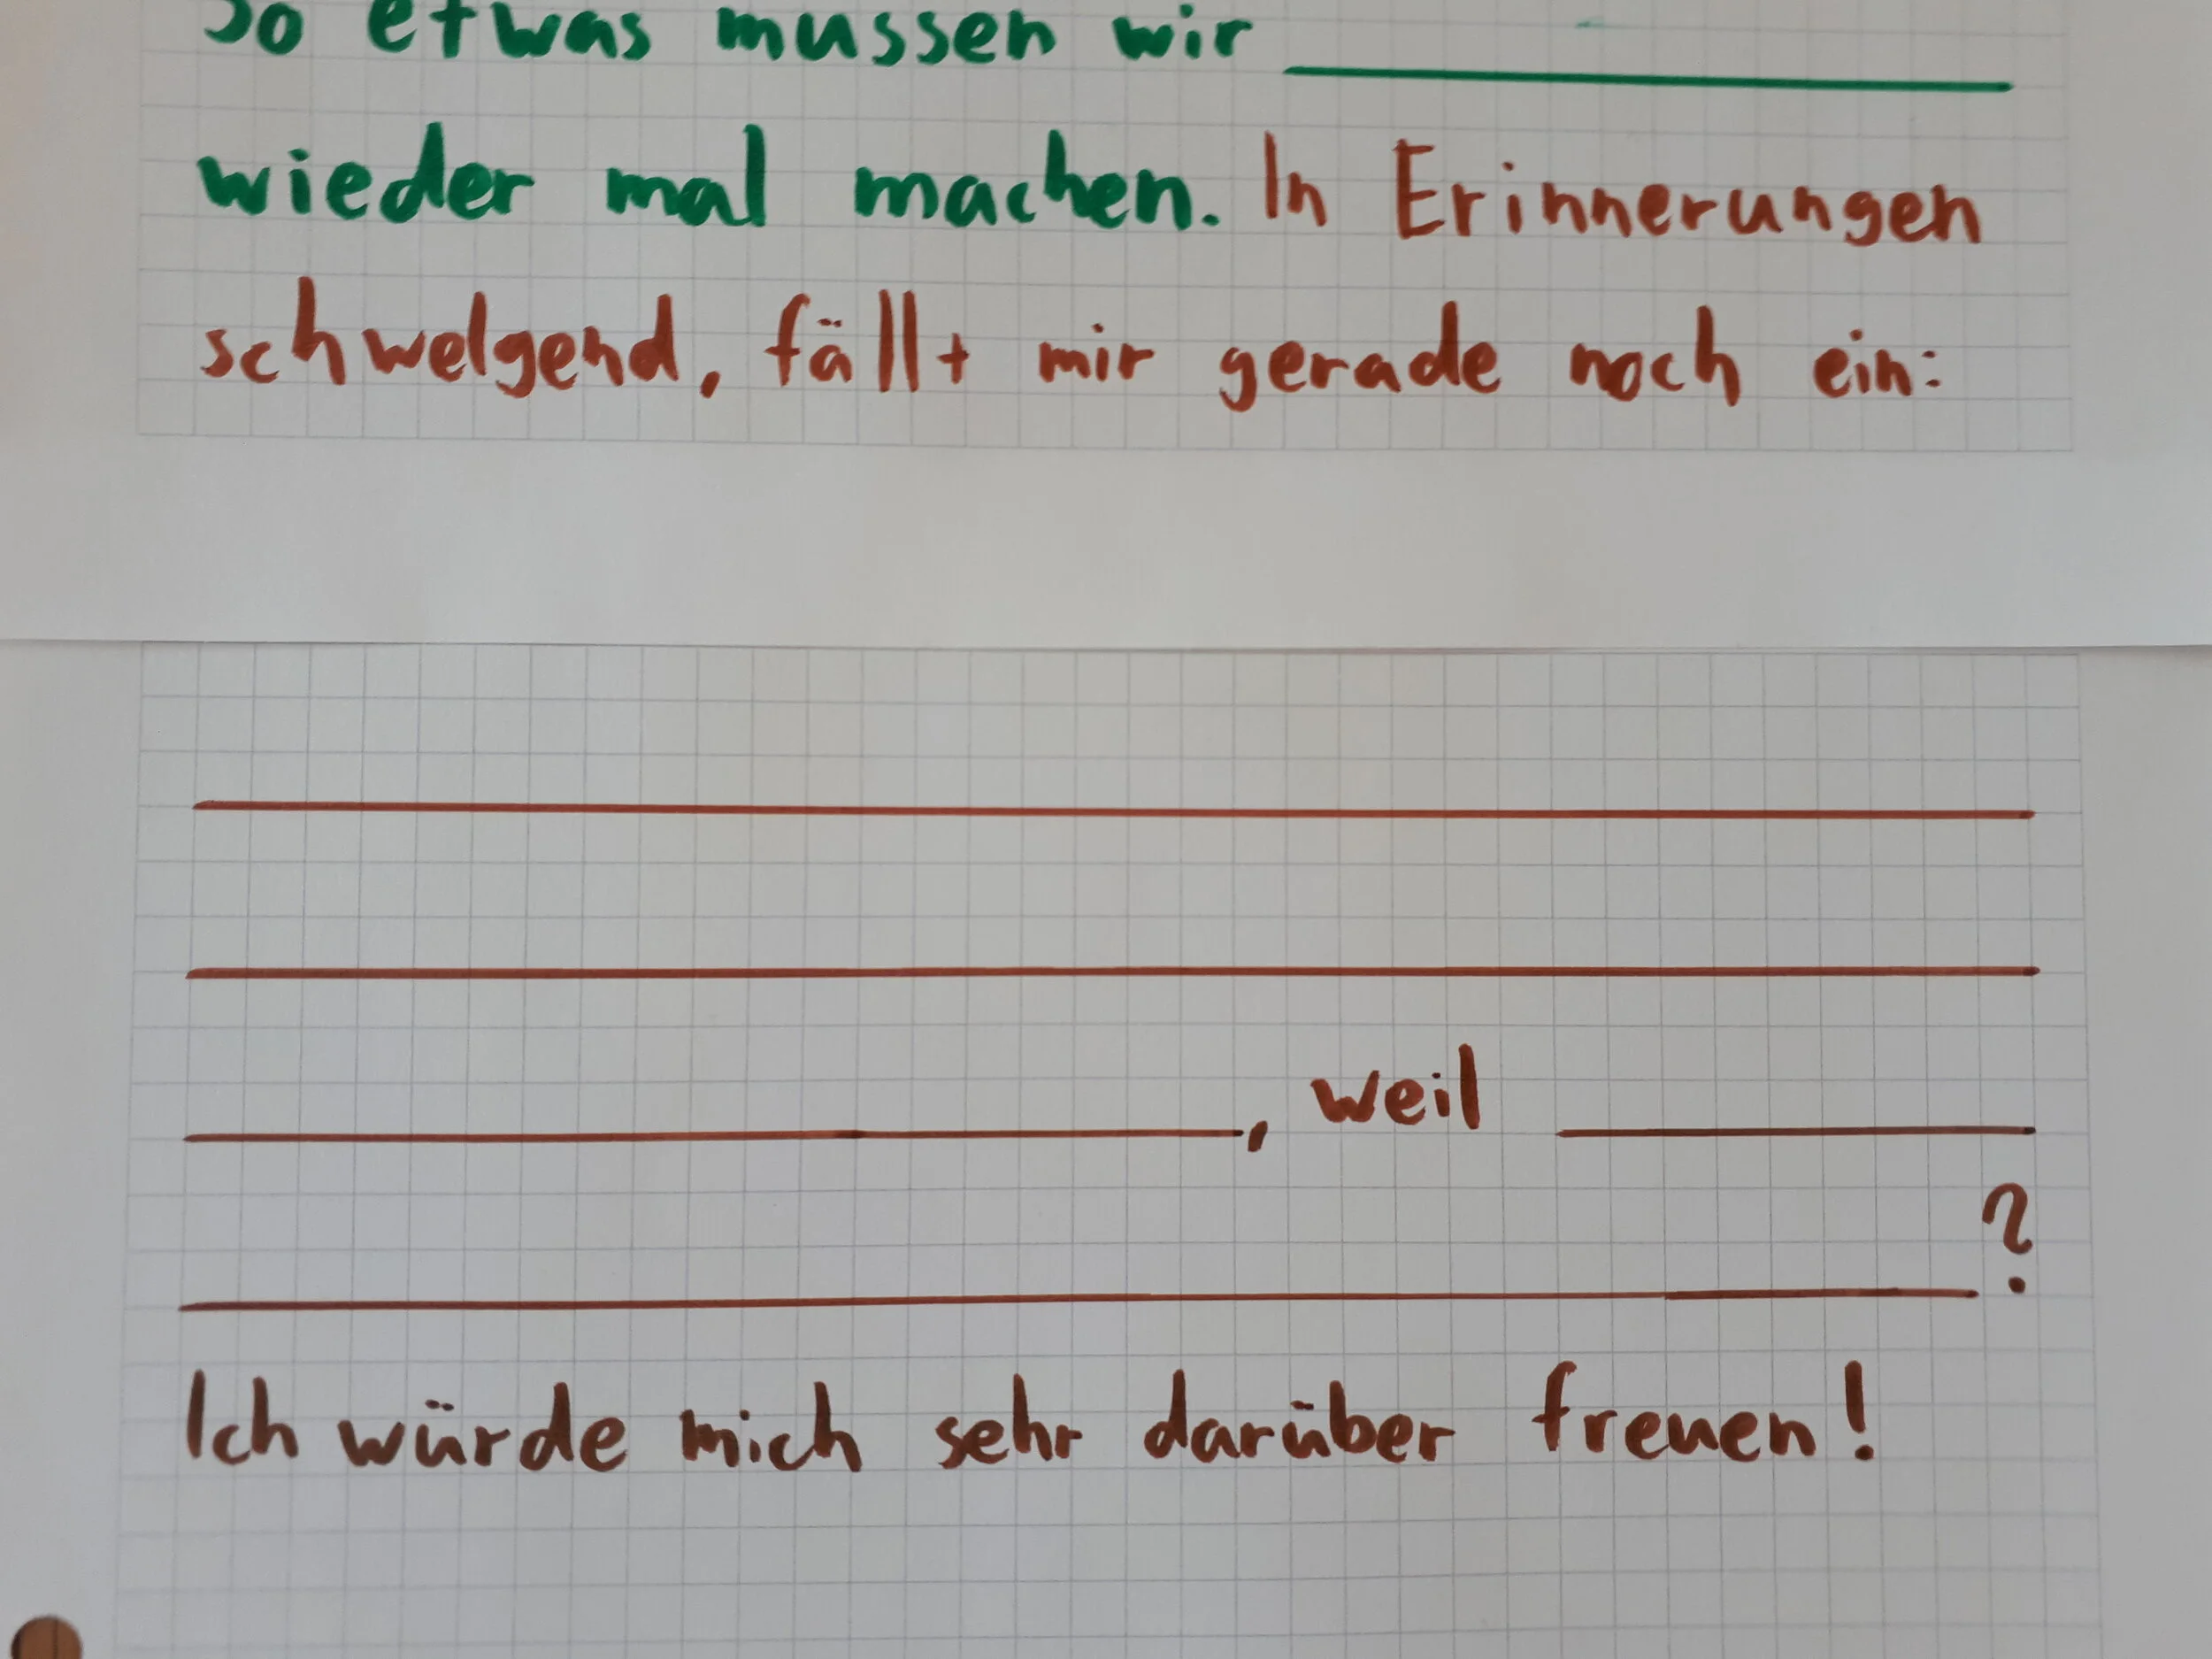 So etwas mussen wir ____________
wieder mal machen. In Erinnerungen
schwelgend, fällt mir gerade noch ein:
, weil
?
Ich würde mich sehr darüber freuen!